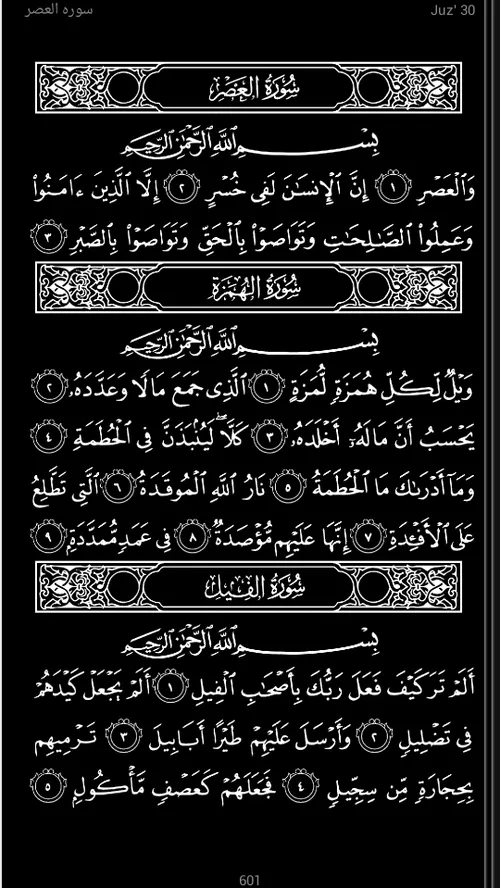 سورة العصر
Juz' 30
سُورَةُ العَصۡرِ
بِسۡمِ ٱللَّهِ ٱلرَّحۡمَٰنِ ٱلرَّحِيمِ
وَٱلۡعَصۡرِ ١ إِنَّ ٱلۡإِنسَٰنَ لَفِي خُسۡرٍ ٢ إِلَّا ٱلَّذِينَ ءَامَنُواْ
وَعَمِلُواْ ٱلصَّٰلِحَٰتِ وَتَوَاصَوۡاْ بِٱلۡحَقِّ وَتَوَاصَوۡاْ بِٱلصَّبۡرِ ٣
سُورَةُ الهُمَزَةِ
بِسۡمِ ٱللَّهِ ٱلرَّحۡمَٰنِ ٱلرَّحِيمِ
وَيۡلٞ لِّكُلِّ هُمَزَةٖ لُّمَزَةٍ ١ ٱلَّذِي جَمَعَ مَالٗا وَعَدَّدَهُۥ ٢
يَحۡسَبُ أَنَّ مَالَهُۥٓ أَخۡلَدَهُۥ ٣ كَلَّاۖ لَيُنۢبَذَنَّ فِي ٱلۡحُطَمَةِ ٤
وَمَآ أَدۡرَىٰكَ مَا ٱلۡحُطَمَةُ ٥ نَارُ ٱللَّهِ ٱلۡمُوقَدَةُ ٦ ٱلَّتِي تَطَّلِعُ
عَلَى ٱلۡأَفۡـِٔدَةِ ٧ إِنَّهَا عَلَيۡهِم مُّؤۡصَدَةٞ ٨ فِي عَمَدٖ مُّمَدَّدَةِۭ ٩
سُورَةُ الفِيلِ
بِسۡمِ ٱللَّهِ ٱلرَّحۡمَٰنِ ٱلرَّحِيمِ
أَلَمۡ تَرَ كَيۡفَ فَعَلَ رَبُّكَ بِأَصۡحَٰبِ ٱلۡفِيلِ ١ أَلَمۡ يَجۡعَلۡ كَيۡدَهُمۡ
فِي تَضۡلِيلٖ ٢ وَأَرۡسَلَ عَلَيۡهِمۡ طَيۡرًا أَبَابِيلَ ٣ تَرۡمِيهِم
بِحِجَارَةٖ مِّن سِجِّيلٖ ٤ فَجَعَلَهُمۡ كَعَصۡفٖ مَّأۡكُولِۭ ٥
601